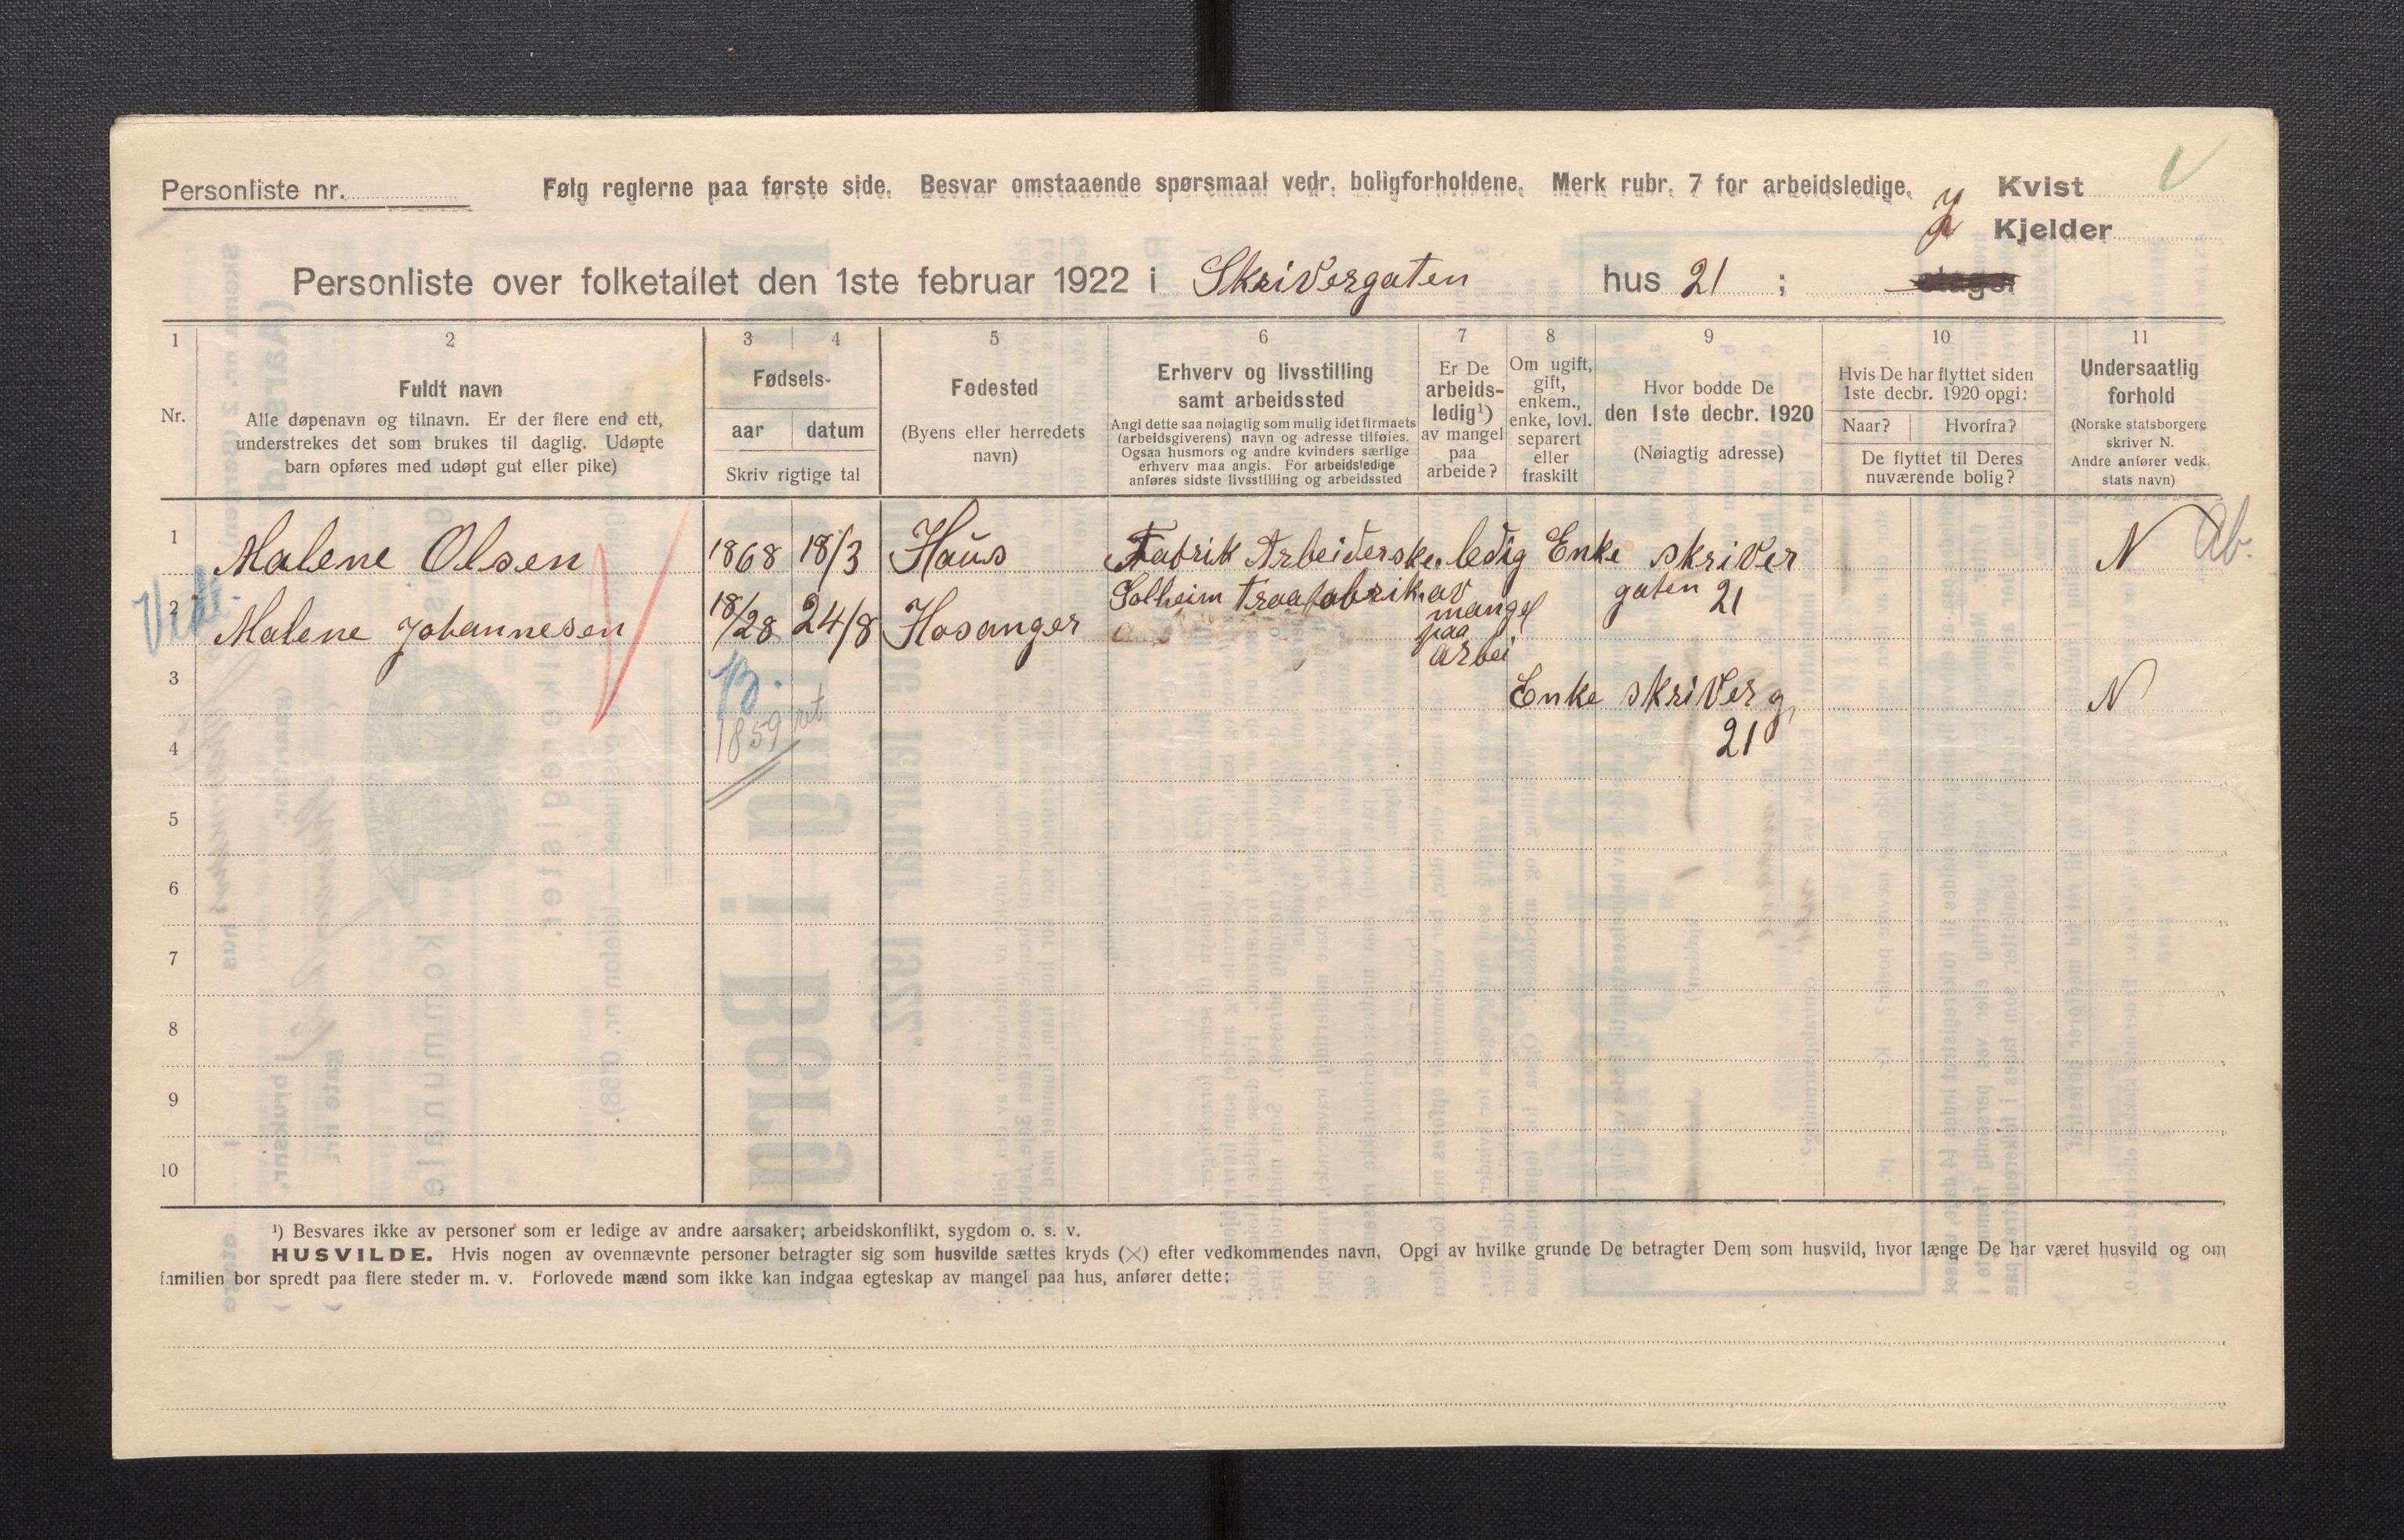 Personliste nr.
Følg reglerne paa første side. Besvar omstaaende spørsmaal vedr. boligforholdene. Merk rubr. 7 for arbeidsledige.
Kvist
Kjelder
Personliste over folketallet den 1ste februar 1922 i Skrivergaten hus 21 ; etage.
1 2 3 4 5 6 7 8 9 10 11
Nr.
Fuldt navn
Alle døpenavn og tilnavn. Er der flere end ett,
understrekes det som brukes til daglig. Udøpte
barn opføres med udøpt gut eller pike)
Fødsels-
aar datum
Skriv rigtige tal
Fødested
(Byens eller herredets
navn)
Erhverv og livsstilling
samt arbeidssted
Angi dette saa nøiagtig som mulig idet firmaets
(arbeidsgiverens) navn og adresse tilføies.
Ogsaa husmors og andre kvinders særlige
erhverv maa angis. For arbeidsledige
anføres sidste livsstilling og arbeidssted
Er De
arbeids-
ledig¹)
av mangel
paa
arbeide?
Om ugift,
gift,
enkem.,
enke, lovl.
separert
eller
fraskilt
Hvor bodde De
den 1ste decbr. 1920
(Nøiagtig adresse)
Hvis De har flyttet siden
1ste decbr. 1920 opgi:
Naar? Hvorfra?
De flyttet til Deres
nuværende bolig?
Undersaatlig
forhold
(Norske statsborgere
skriver N.
Andre anfører vedk.
stats navn)
1 Malene Olsen 1868 18/3 Haus Fabrik Arbeiderske. ledig Enke skriver N Ab.
Solheim Traafabrik. av gaten 21
mangel
paa
arbei
2 Malene Johannesen 18/28 24/8 Hosanger
Enke skriver g. N
21
B.
1859 ret
3
4
5
6
7
8
9
10
¹) Besvares ikke av personer som er ledige av andre aarsaker; arbeidskonflikt, sygdom o. s. v.
HUSVILDE. Hvis nogen av ovennævnte personer betragter sig som husvilde sættes kryds (×) efter vedkommendes navn. Opgi av hvilke grunde De betragter Dem som husvild, hvor længe De har været husvild og om
familien bor spredt paa flere steder m. v. Forlovede mænd som ikke kan indgaa egteskap av mangel paa hus, anfører dette: